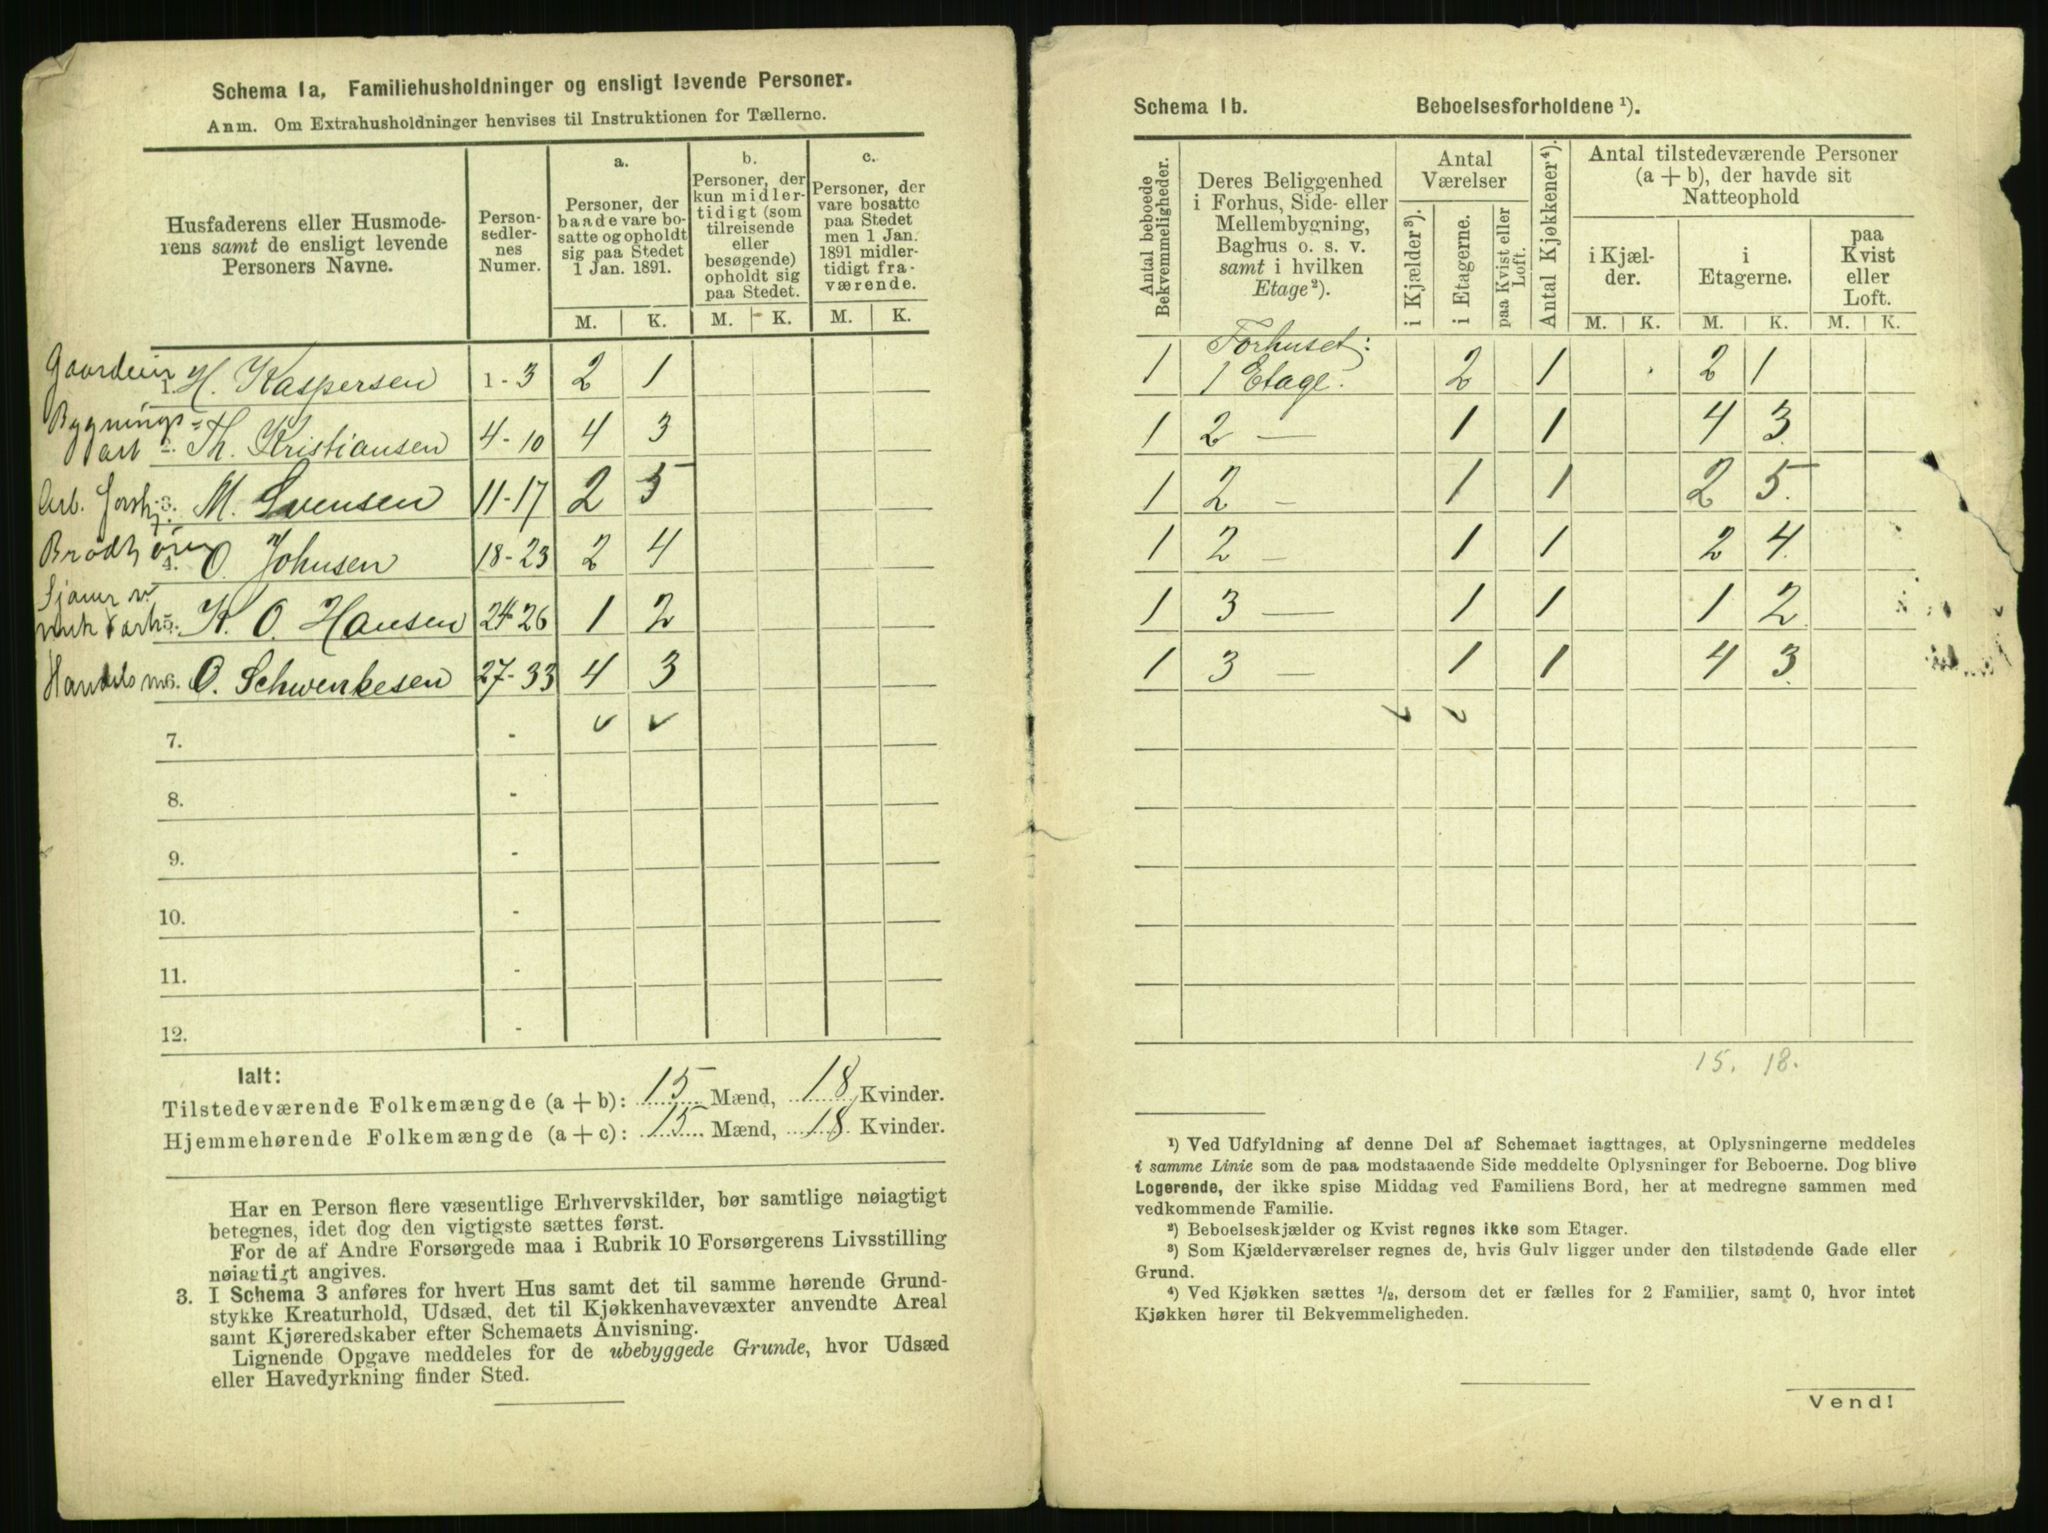 Schema 1a, Familiehusholdninger og ensligt levende Personer.
Anm. Om Extrahusholdninger henvises til Instruktionen for Tællerne.
Husfaderens eller Husmoderens samt de ensligt levende Personers Navne.
Personsedlernes Numer.
a.
Personer, der baade vare bosatte og opholdt sig paa Stedet 1 Jan. 1891.
b.
Personer, der kun midlertidigt (som tilreisende eller besøgende) opholdt sig paa Stedet.
c.
Personer, der vare bosatte paa Stedet men 1 Jan. 1891 midlertidigt fraværende.
M. K. M. K. M. K.
1. H. Kaspersen 1-3 2 1
Bygnings=
2. Th. Kristiansen 4-10 4 3
Arb. 3. M. Svensen 11-17 2 5
4. O. Johnsen 18-23 2 4
5. K. O. Hansen 24-26 1 2
Handelsm 6. O. Schwenkesen 27-33 4 3
7. - ✓ ✓
8. -
9. -
10. -
11. -
12. -
Ialt:
Tilstedeværende Folkemængde (a + b): 15 Mænd, 18 Kvinder.
Hjemmehørende Folkemængde (a + c): 15 Mænd, 18 Kvinder.
Har en Person flere væsentlige Erhvervskilder, bør samtlige nøiagtigt
betegnes, idet dog den vigtigste sættes først.
For de af Andre Forsørgede maa i Rubrik 10 Forsørgerens Livsstilling
nøiagtigt angives.
3. I Schema 3 anføres for hvert Hus samt det til samme hørende Grund-
stykke Kreaturhold, Udsæd, det til Kjøkkenhavevæxter anvendte Areal
samt Kjøreredskaber efter Schemaets Anvisning.
Lignende Opgave meddeles for de ubebyggede Grunde, hvor Udsæd
eller Havedyrkning finder Sted.
Schema 1b. Beboelsesforholdene ¹).
Antal beboede Bekvemmeligheder.
Deres Beliggenhed i Forhus, Side- eller Mellembygning, Baghus o. s. v. samt i hvilken Etage²).
Antal Værelser
i Kjælder³).
i Etagerne.
paa Kvist eller Loft.
Antal Kjøkkener⁴).
Antal tilstedeværende Personer (a + b), der havde sit Natteophold
i Kjælder.
i Etagerne.
paa Kvist eller Loft.
M. K. M. K. M. K.
Forhuset:
1 1 Etage. 2 1 2 1
1 2 — 1 1 4 3
1 2 — 1 1 2 5.
1 2 — 1 1 2 4.
1 3 — 1 1 1 2
1 3 — 1 1 4 3
15. 18.
¹) Ved Udfyldning af denne Del af Schemaet iagttages, at Oplysningerne meddeles
i samme Linie som de paa modstaaende Side meddelte Oplysninger for Beboerne. Dog blive
Logerende, der ikke spise Middag ved Familiens Bord, her at medregne sammen med
vedkommende Familie.
²) Beboelseskjælder og Kvist regnes ikke som Etager.
³) Som Kjælderværelser regnes de, hvis Gulv ligger under den tilstødende Gade eller
Grund.
⁴) Ved Kjøkken sættes ½, dersom det er fælles for 2 Familier, samt 0, hvor intet
Kjøkken hører til Bekvemmeligheden.
Vend!